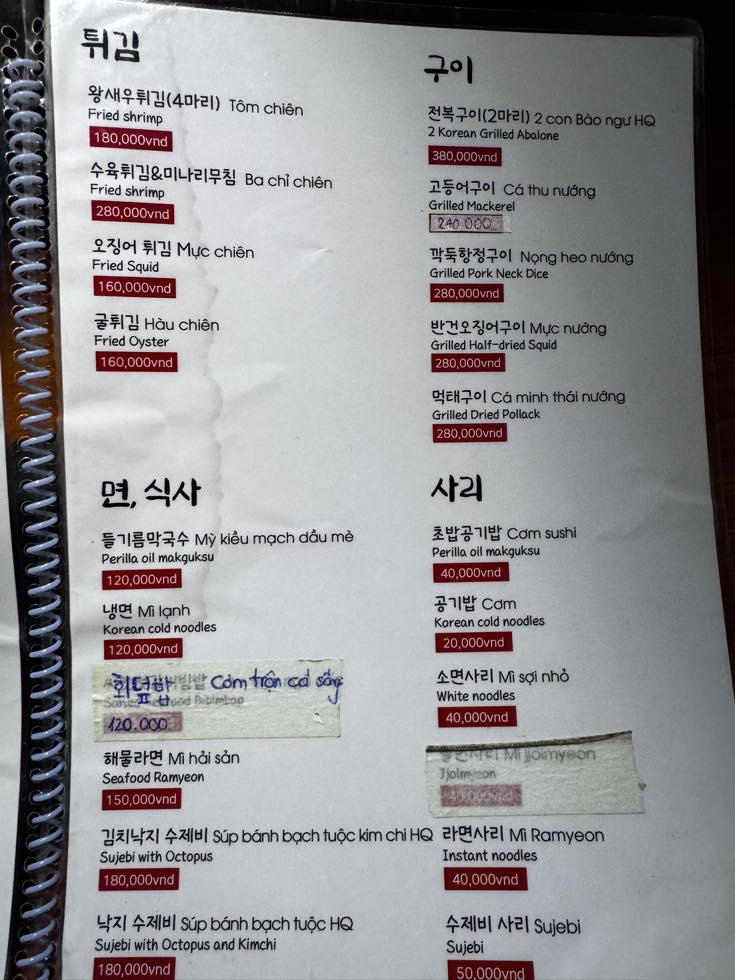 튀김
왕새우튀김(4마리) Tôm chiên
Fried shrimp
180,000vnd
수육튀김&미나리무침 Ba chỉ chiên
Fried shrimp
280,000vnd
오징어 튀김 Mực chiên
Fried Squid
160,000vnd
굴튀김 Hàu chiên
Fried Oyster
160,000vnd
구이
전복구이(2마리) 2 con Bào ngư HQ
2 Korean Grilled Abalone
380,000vnd
고등어구이 Cá thu nướng
Grilled Mackerel
240.000
깍둑항정구이 Nọng heo nướng
Grilled Pork Neck Dice
280,000vnd
반건오징어구이 Mực nướng
Grilled Half-dried Squid
280,000vnd
먹태구이 Cá minh thái nướng
Grilled Dried Pollack
280,000vnd
면, 식사
들기름막국수 Mỳ kiều mạch dầu mè
Perilla oil makguksu
120,000vnd
냉면 Mì lạnh
Korean cold noodles
120,000vnd
회덮밥 Cơm trộn cá sống
120.000
해물라면 Mì hải sản
Seafood Ramyeon
150,000vnd
김치낙지 수제비 Súp bánh bạch tuộc kim chi HQ
Sujebi with Octopus
180,000vnd
낙지 수제비 Súp bánh bạch tuộc HQ
Sujebi with Octopus and Kimchi
180,000vnd
사리
초밥공기밥 Cơm sushi
Perilla oil makguksu
40,000vnd
공기밥 Cơm
Korean cold noodles
20,000vnd
소면사리 Mì sợi nhỏ
White noodles
40,000vnd
Mì jjolmyeon
Jjolmyeon
40,000vnd
라면사리 Mì Ramyeon
Instant noodles
40,000vnd
수제비 사리 Sujebi
Sujebi
50,000vnd